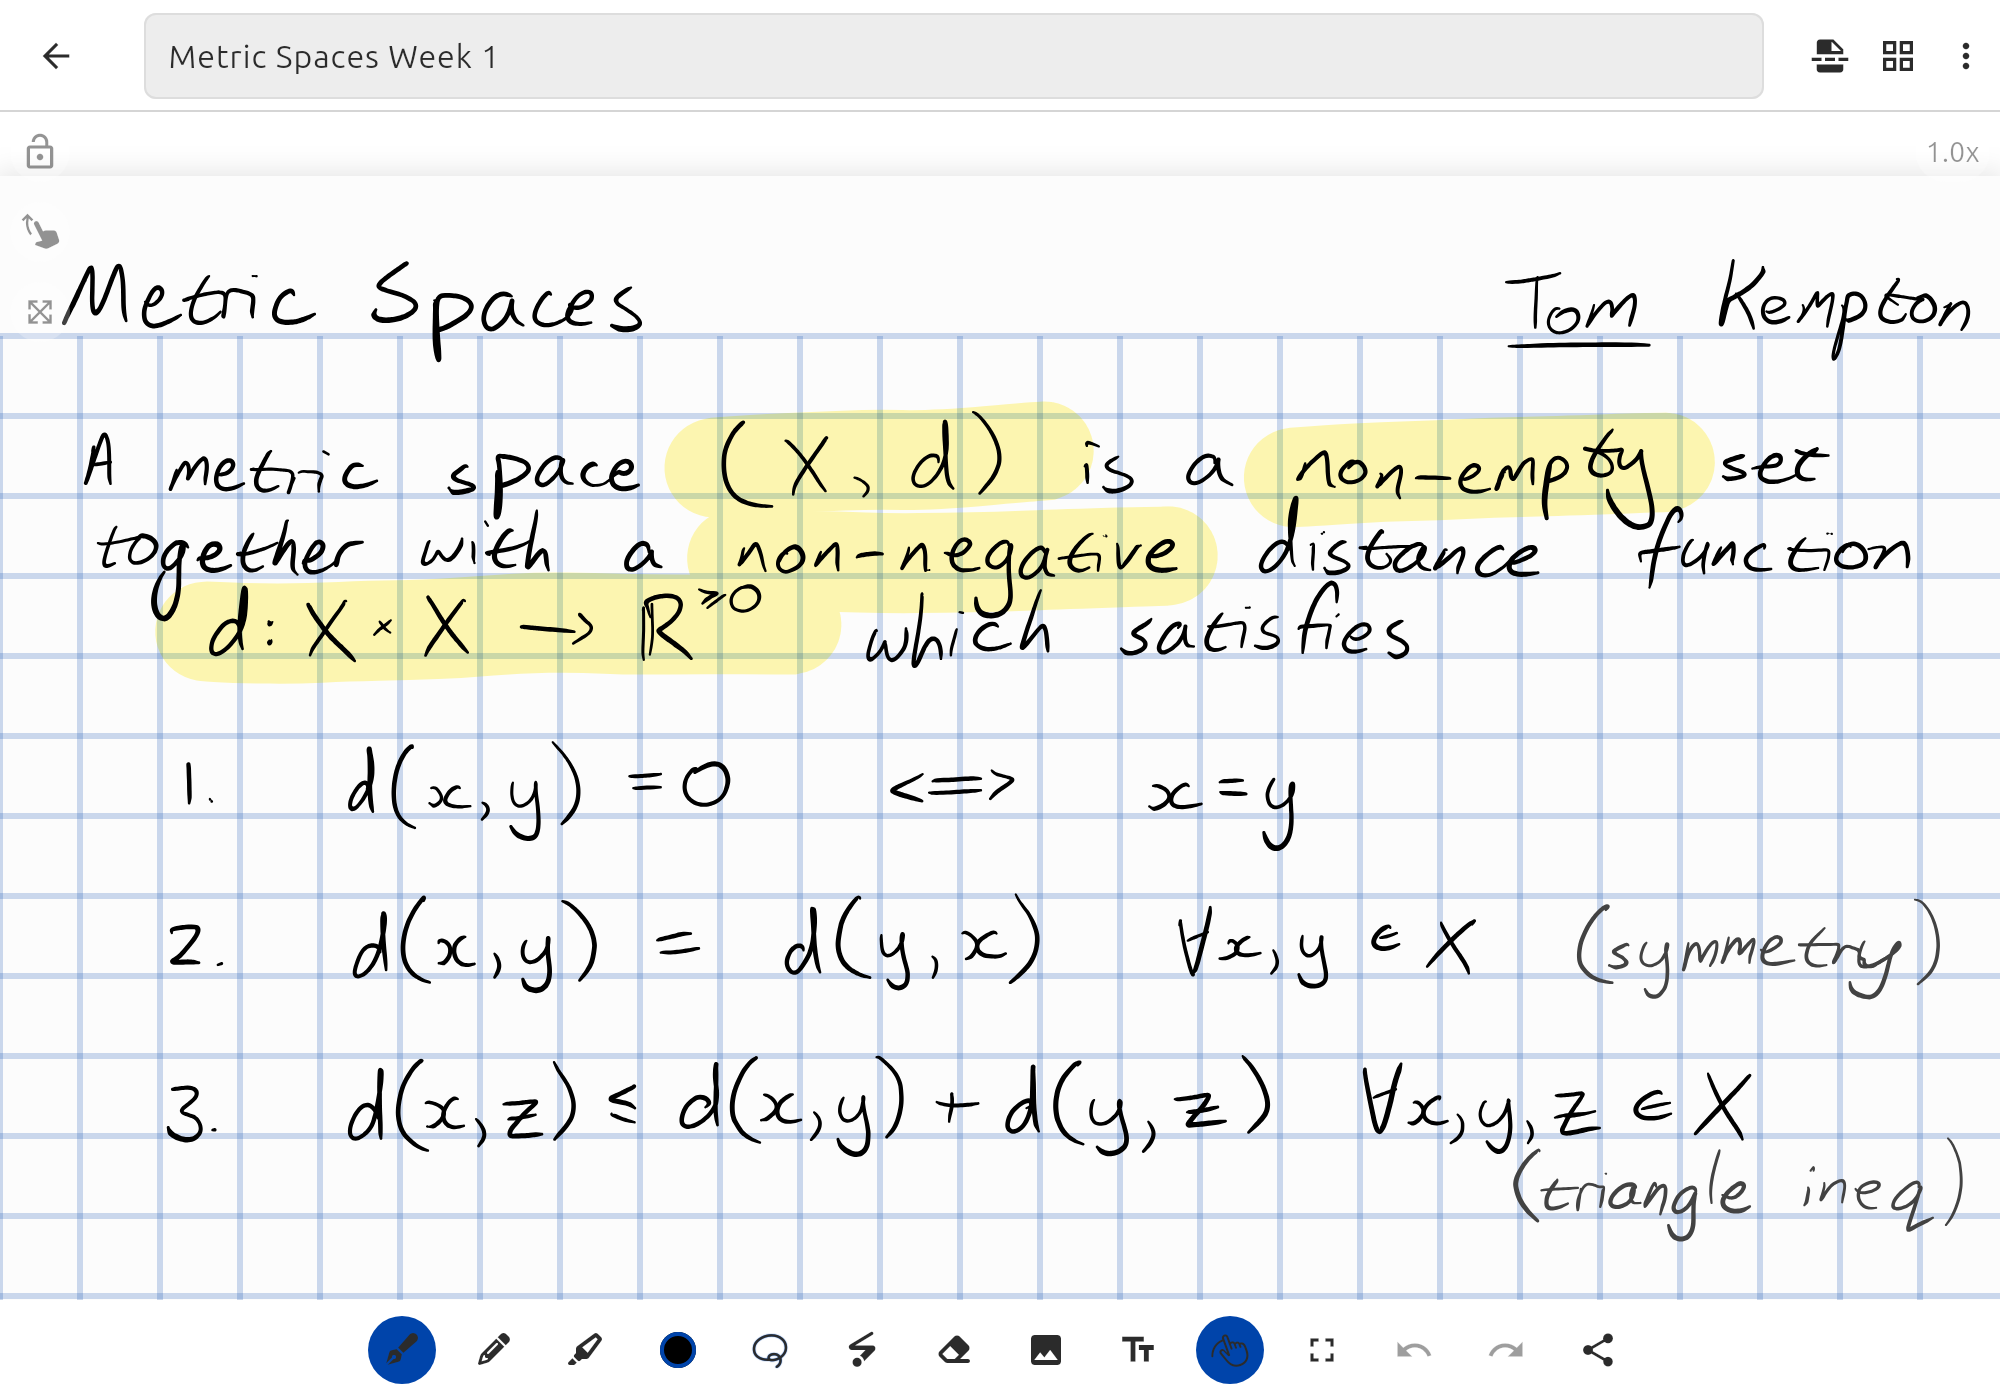 Metric Spaces Week 1
1.0x
Metric Spaces Tom Kempton
A metric space (X, d) is a non-empty set
together with a non-negative distance function
d: X × X → ℝ^≥0 which satisfies
1. d(x,y) = 0 <=> x = y
2. d(x,y) = d(y,x) ∀x,y ∈ X (symmetry)
3. d(x,z) ≤ d(x,y) + d(y,z) ∀x,y,z ∈ X
(triangle ineq)
Tт